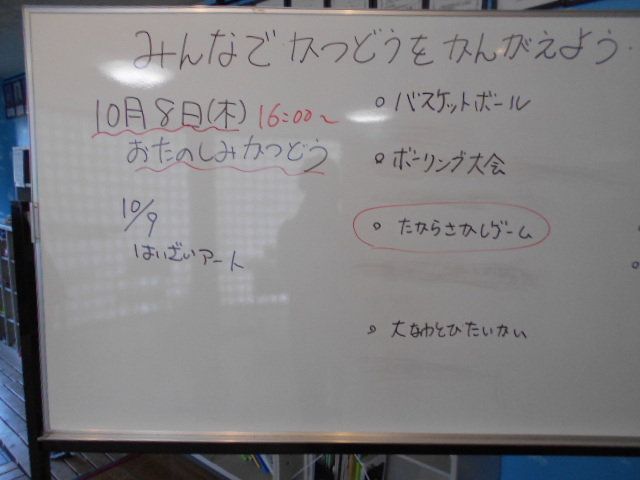 みんなでかつどうをかんがえよう.
10月8日(木) 16:00~
おたのしみかつどう
10/9
はいざいアート
○ バスケットボール
○ ボーリング大会
○ たからさがしゲーム
○ 大なわとびたいかい